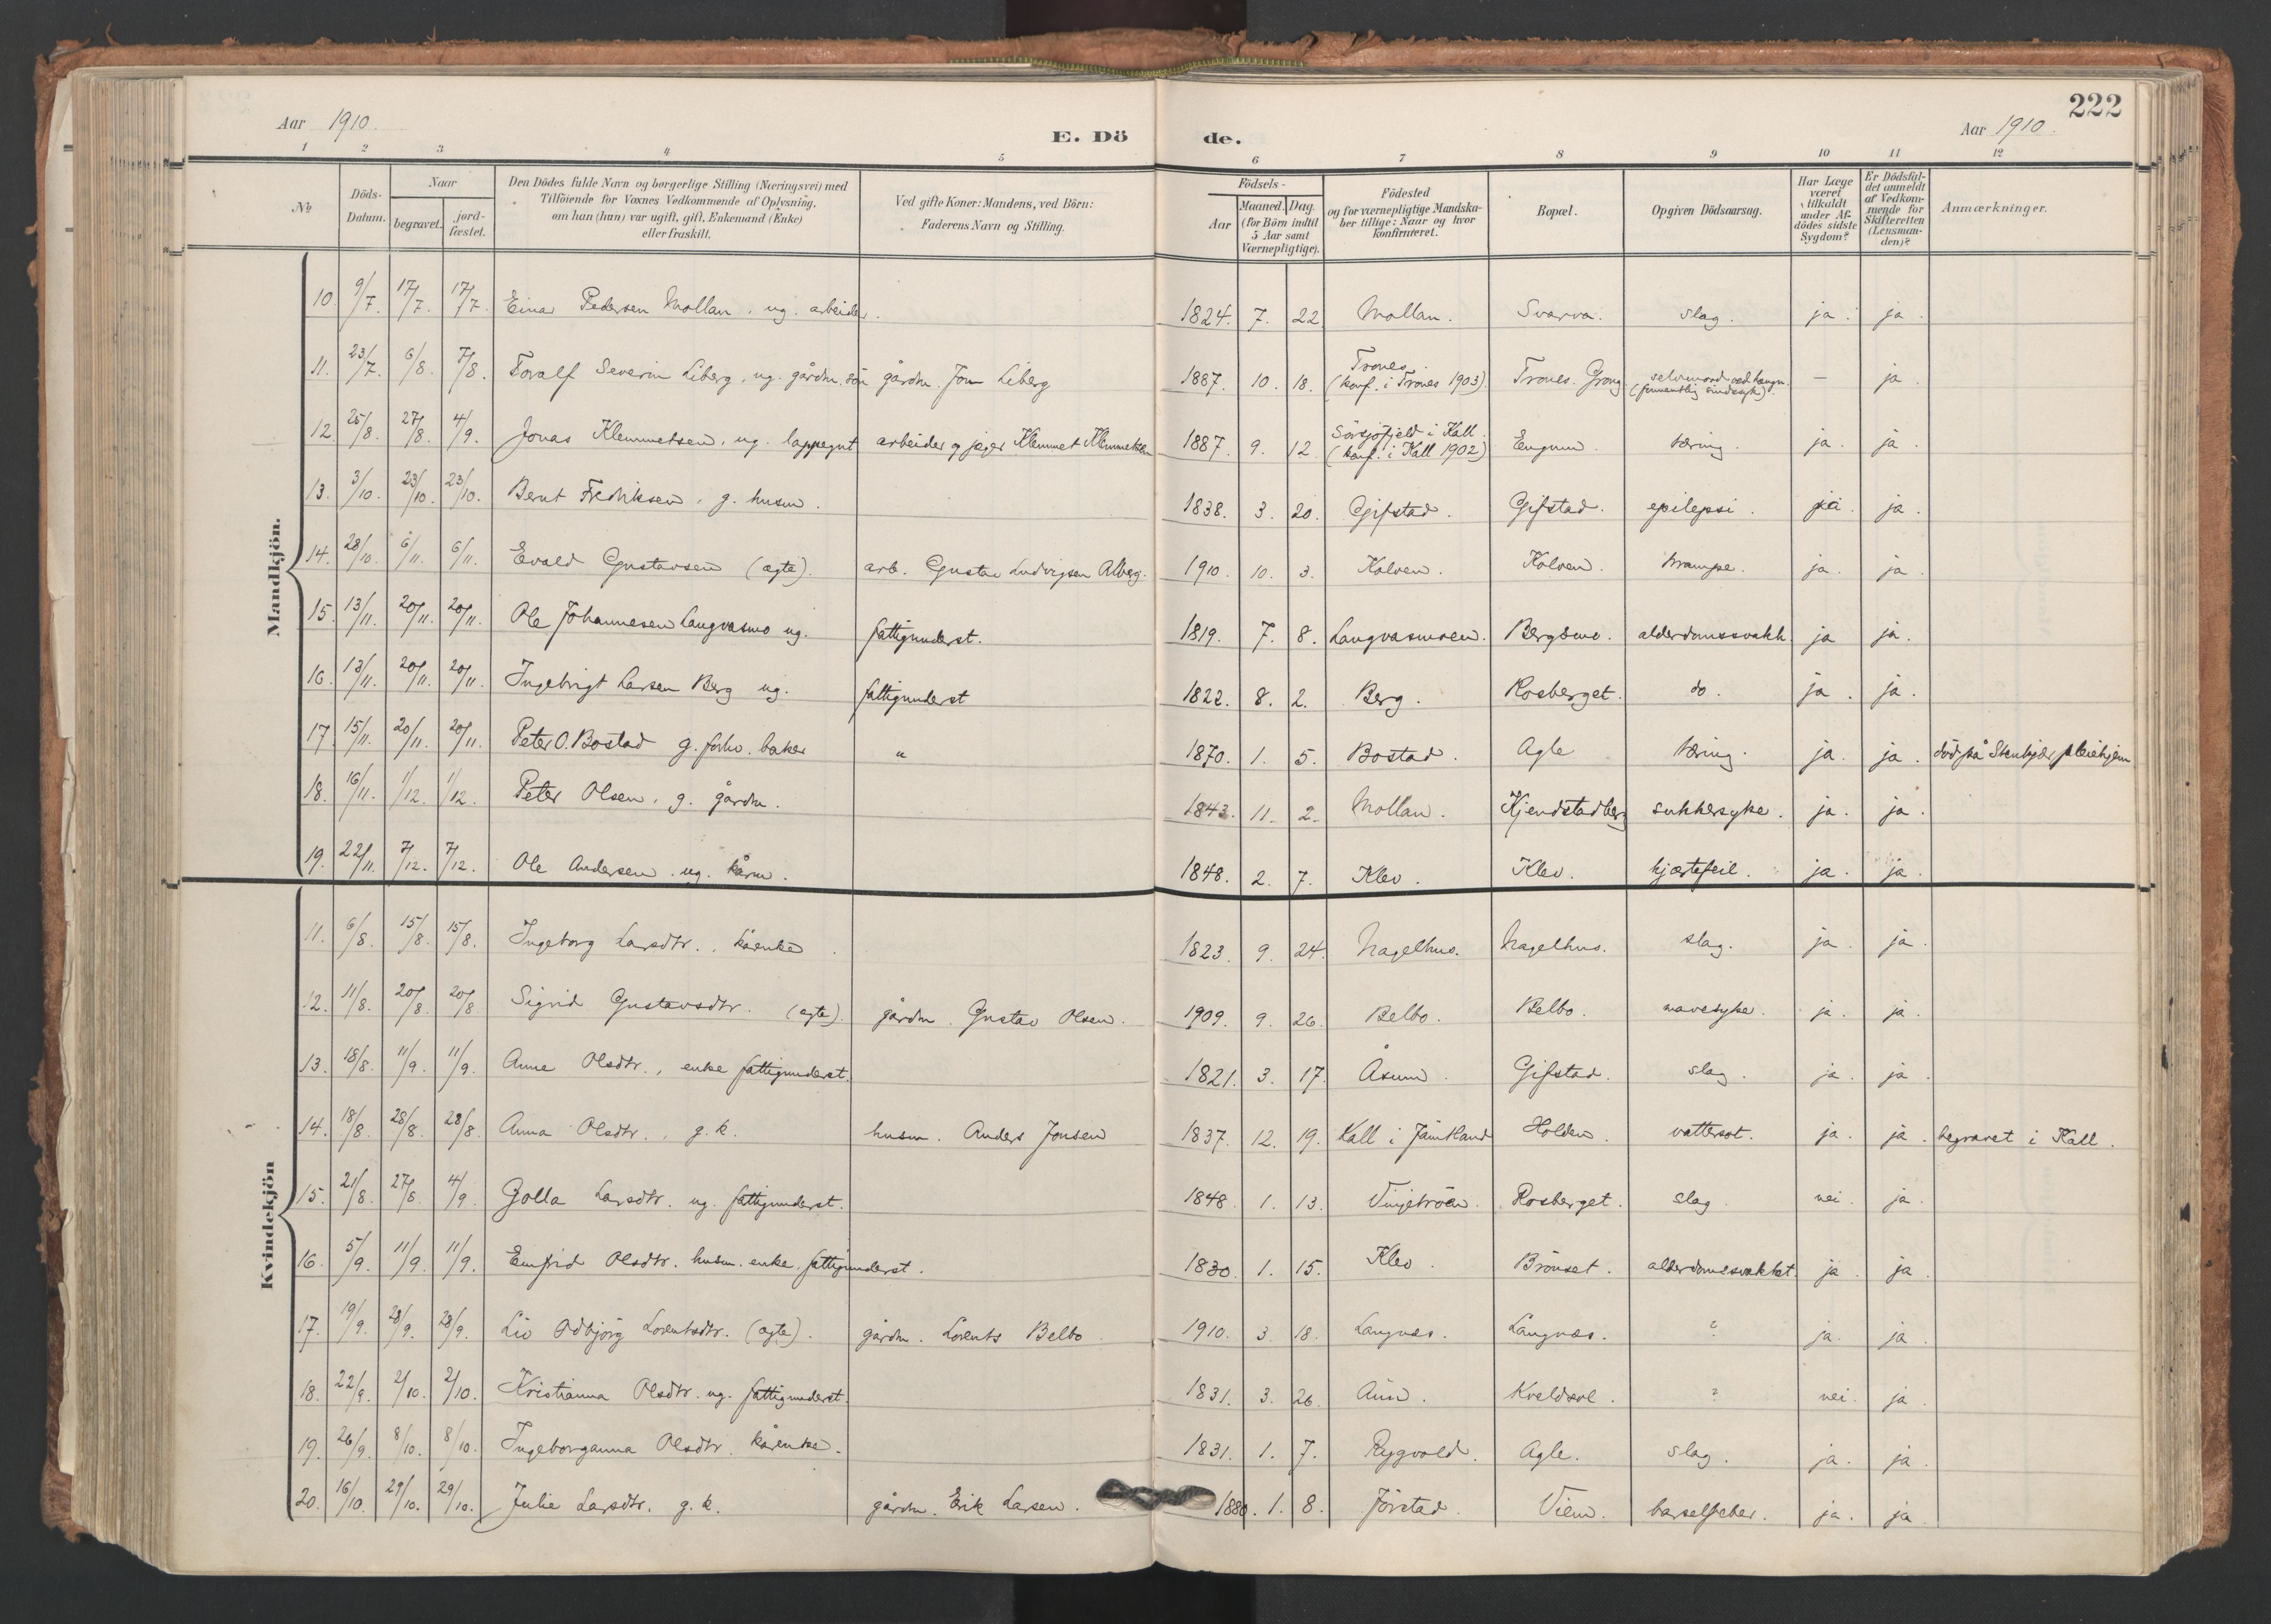 222
Aar 1910.
E. Dö de.
Aar 1910.
1 2 3 4 5 6 7 8 9 10 11 12
No
Döds-Datum.
Naar
begravet.
jord-fæstet.
Den Dödes fulde Navn og borgerlige Stilling (Næringsvei) med
Tilföiende for Voxnes Vedkommende af Oplysning,
om han (hun) var ugift, gift, Enkemand (Enke)
eller fraskilt.
Ved gifte Koner: Mandens, ved Börn:
Faderens Navn og Stilling.
Födsels-
Aar
Maaned. Dag.
(for Börn indtil
5 Aar samt
Værnepligtige).
Födested
og for værnepligtige Mandska-
ber tillige: Naar og hvor
konfirmeret.
Bopæl.
Opgiven Dödsaarsag.
Har Læge
været
tilkaldt
under Af-
dödes sidste
Sygdom?
Er Dödsfal-
det anmeldt
af Vedkom-
mende for
Skifteretten
(Lensman-
den)?
Anmærkninger.
Mandkjön.
10. 9/7. 17/7. 17/7. Einar Pedersen Mollan. ug. arbeider. 1824. 7. 22 Mollan. Svarva. slag. ja. ja.
11. 23/7. 6/8. 7/8. Toralf Severin Liberg. ug. gårdm. sön gårdm. Jon Liberg 1887. 10. 18. Trones. (konf. i Trones 1903). Trones. Grong selvmord ved hængn. (formentlig sindssyk). — ja
12. 25/8. 27/8. 4/9. Jonas Klemmetsen. ug. lappegut arbeider og jæger Klemmet Klemmetsen 1887. 9. 12. Sörsjöfjeld i Kall. (konf. i Kall 1902) Engum. tæring. ja. ja.
13. 3/10. 23/10. 23/10. Bernt Fredriksen. g. husm. 1838. 3. 20. Gifstad. Gifstad. epilepsi. ja. ja.
14. 28/10. 6/11. 6/11. Evald Gustavsen (ægte). arb. Gustav Ludvigsen Alberg. 1910. 10. 3. Kolven. Kolven. krampe. ja. ja.
15. 13/11. 20/11. 20/11. Ole Johannesen Langvasmo ug. fattigunderst. 1819. 7. 8. Langvasmoen. Bergsmo. alderdomssvakh. ja ja.
16. 13/11. 20/11. 20/11. Ingebrigt Larsen Berg ug. fattigunderst 1822. 8. 2. Berg. Rosberget. do. ja. ja.
17. 15/11. 20/11. 20/11. Peter O. Bostad g. forhv. baker " 1870. 1. 5. Bostad. Agle tæring. ja. ja. död på Stenkjær pleiehjem
18. 16/11. 1/12. 1/12. Peter Olsen. g. gårdm. 1843. 11. 2. Mollan. Kjendstadberg sukkersyke. ja. ja.
19. 22/11. 7/12. 7/12. Ole Andersen. ug. kårm. 1848. 2. 7. Klev. Klev. hjærtefeil. ja. ja.
Kvindekjön
11. 6/8. 15/8. 15/8. Ingeborg Larsdtr. kårenke 1823. 9. 24. Nagelhus. Nagelhus. slag. ja. ja.
12. 11/8. 20/8. 20/8. Sigrid Gustavsdtr. (ægte). gårdm. Gustav Olsen. 1909. 9. 26. Belbo. Belbo. mavesyke. ja. ja.
13. 18/8. 11/9. 11/9. Anne Olsdtr., enke fattigunderst. 1821. 3. 17. Åsum. Gifstad. slag. ja. ja.
14. 18/8. 28/8. 28/8. Anna Olsdtr., g. k. husm. Anders Jonsen 1837. 12. 19. Kall i Jämtland Holden. vattersot. ja. ja. begravet i Kall.
15. 21/8. 27/8. 4/9. Golla Larsdtr. ug. fattigunderst. 1848. 1. 13. Vinjetröen. Rosberget. slag. nei. ja.
16. 5/9. 11/9. 11/9. Emfrid Olsdtr. husm. enke. fattigunderst. 1830. 1. 15. Klev. Brönset. alderdomssvakhet. ja. ja.
17. 19/9. 28/9. 28/9. Liv Odbjörg Lorentsdtr. (ægte). gårdm. Lorents Belbo 1910. 3. 18. Langnes. Langnes. ? ja. ja.
18. 22/9. 2/10. 2/10. Kristianna Olsdtr. ug. fattigunderst. 1831. 3. 26. Kveldsol. ? nei. ja.
19. 26/9. 8/10. 8/10. Ingeborganna Olsdtr. kårenke. 1831. 1. 7. Rygvold. Agle. slag. ja. ja.
20. 16/10. 29/10. 29/10. Julie Larsdtr. g. k. gårdm. Erik Larsen. 1880. 1. 8. Jörstad. Viem. barselfeber. ja. ja